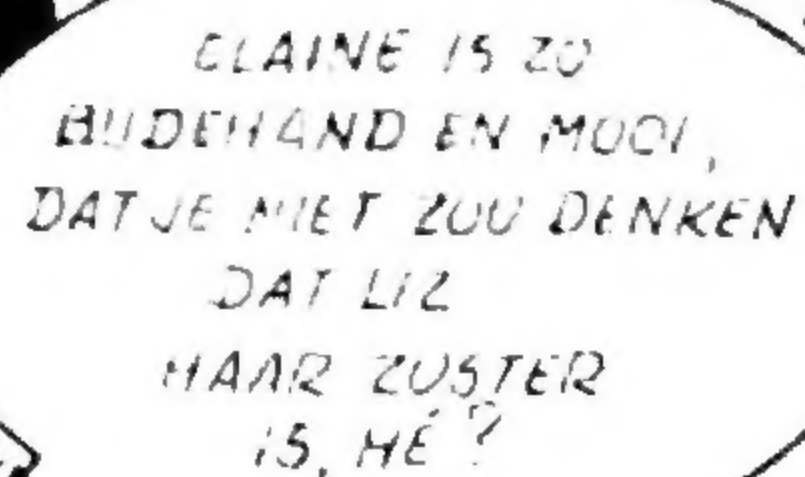 ELAINE IS ZO
BIJDEHAND EN MOOI,
DAT JE NIET ZOU DENKEN
DAT LIZ
HAAR ZUSTER
IS, HÉ?